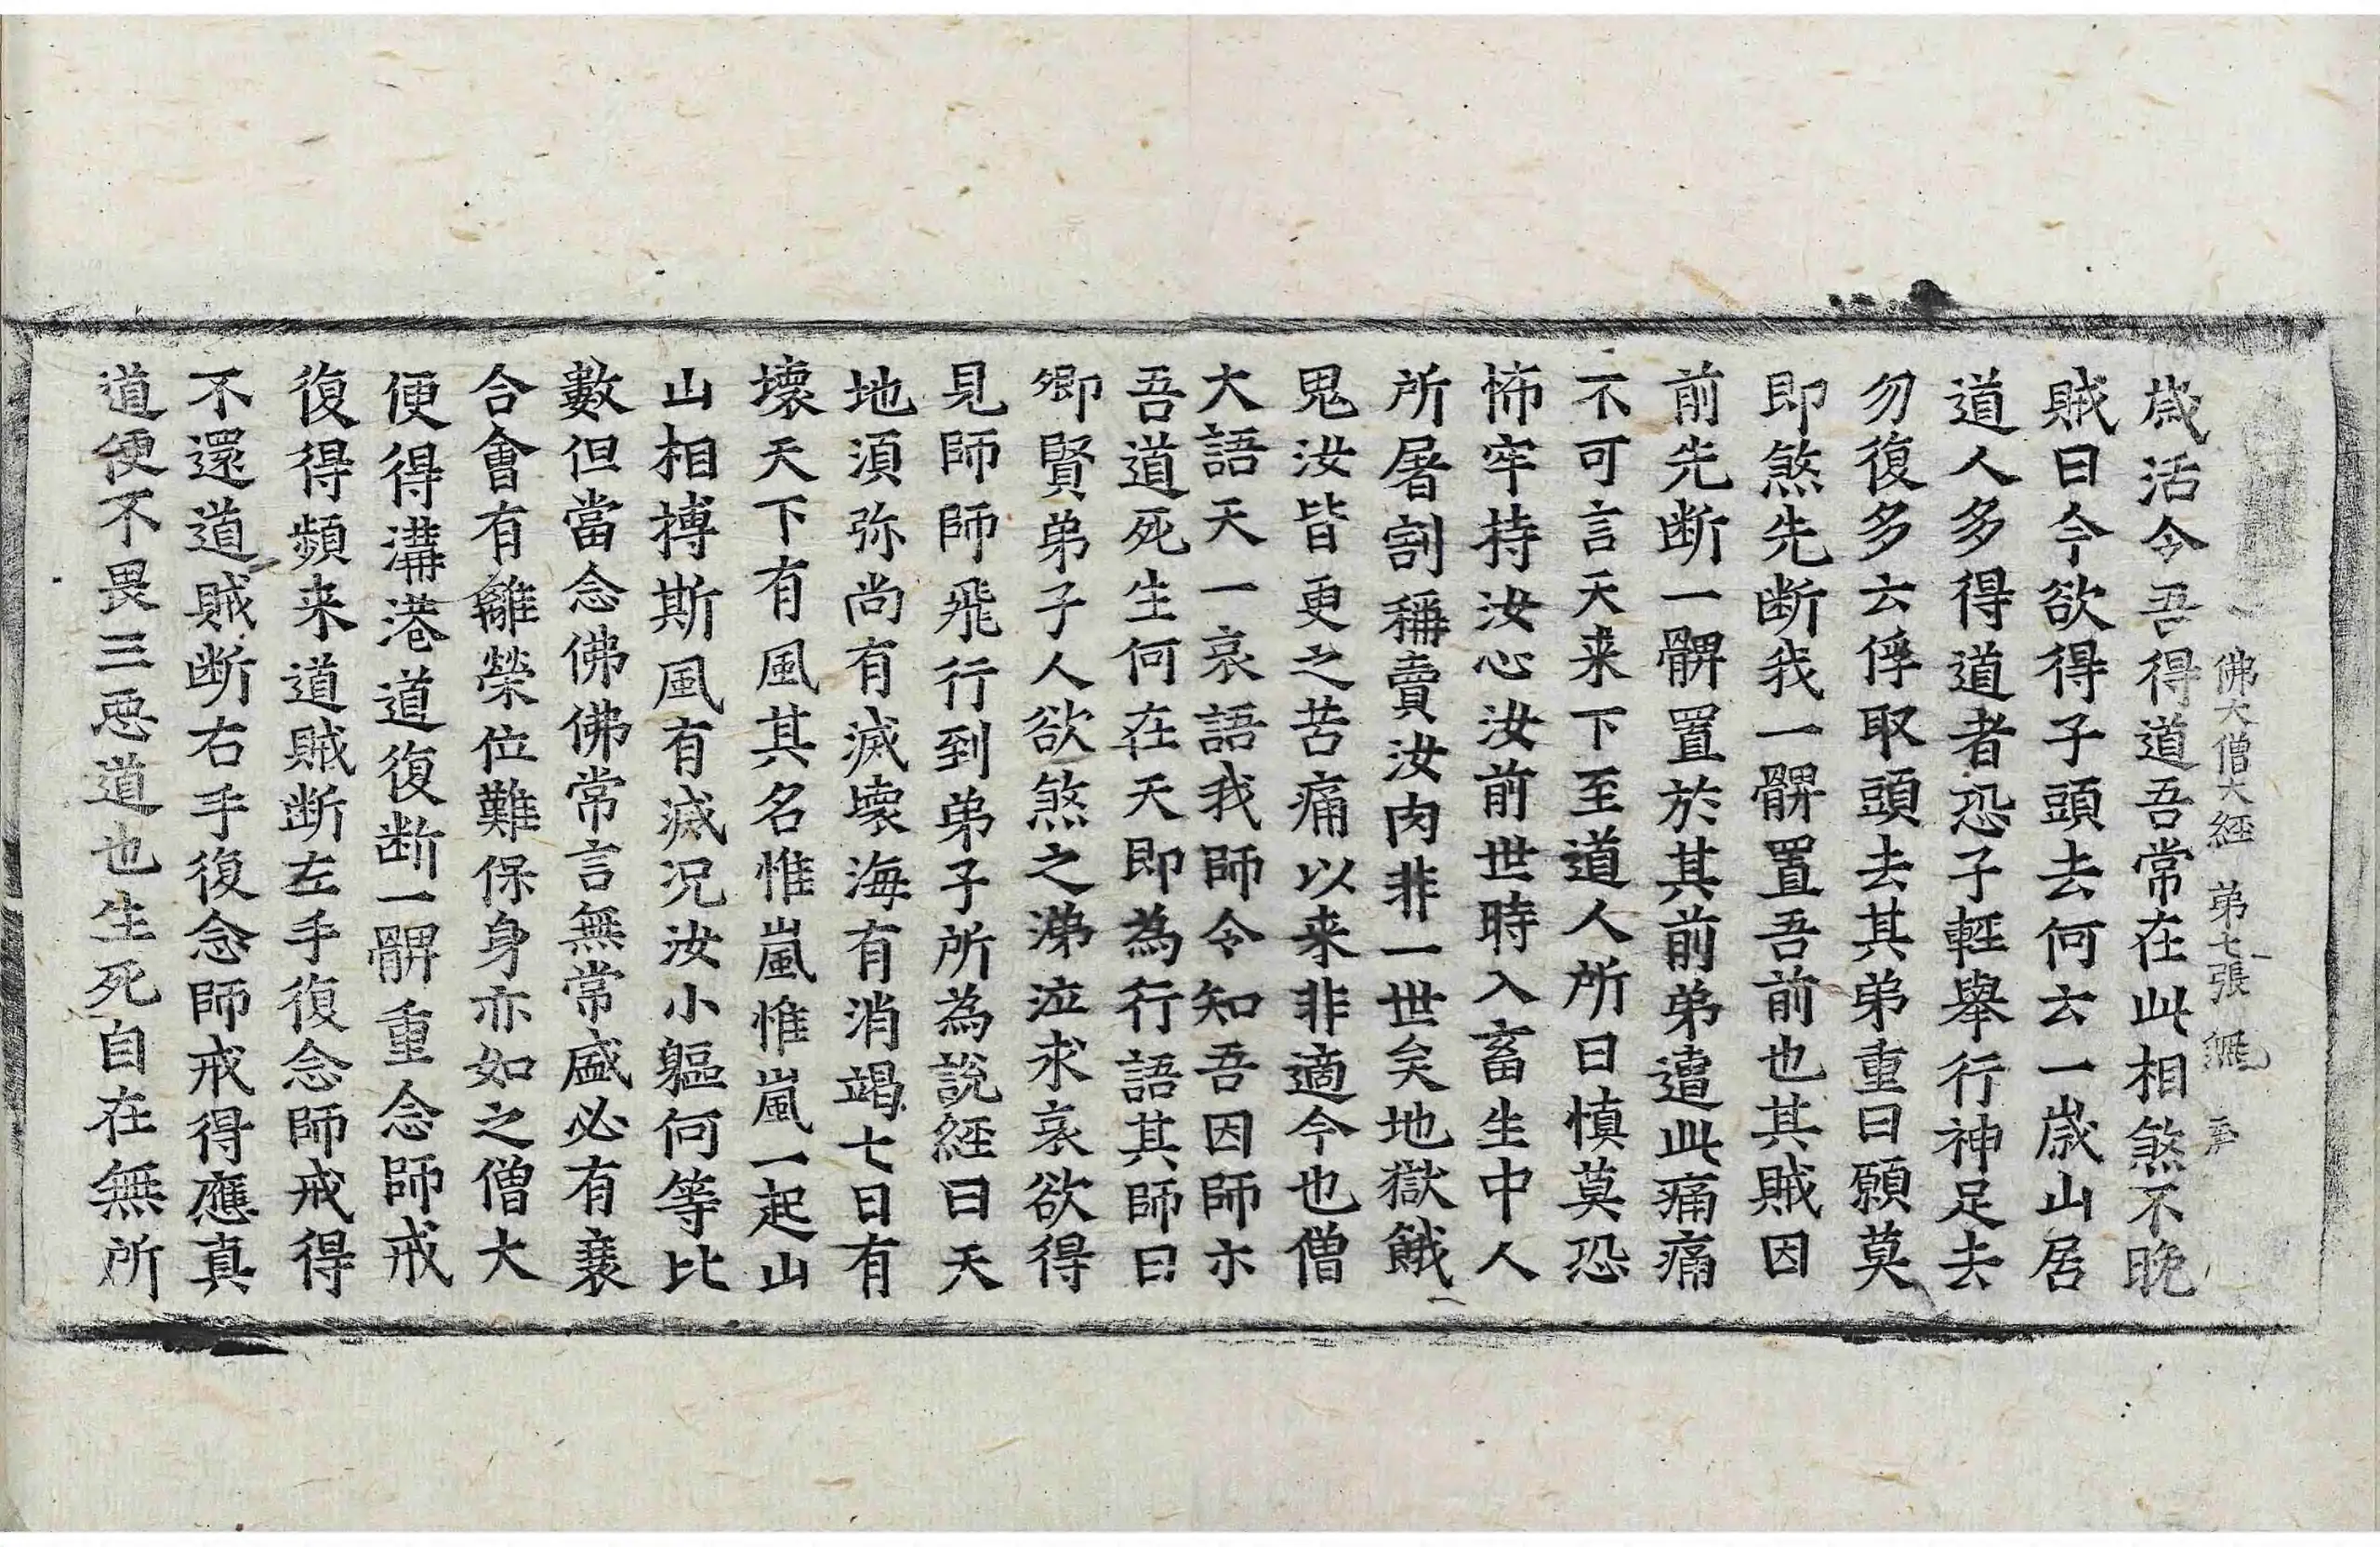 佛大僧大經 弟七張 無
歲活令吾得道吾常在此相煞不晚
賊曰今欲得子頭去何云一歲山居
道人多得道者恐子輕舉行神足去
勿復多云俘取頭去其弟重曰願莫
即煞先断我一髀置吾前也其賊因
前先断一髀置於其前弟遭此痛痛
不可言天来下至道人所曰慎莫恐
怖牢持汝心汝前世時入畜生中人
所屠割稱賣汝肉非一世矣地獄餓
鬼汝皆更之苦痛以来非適今也僧
大語天一哀語我師令知吾因師亦
吾道死生何在天即為行語其師曰
卿賢弟子人欲煞之涕泣求哀欲得
見師師飛行到弟子所為說經曰天
地湏弥尚有滅壞海有消竭七日有
壞天下有風其名惟嵐惟嵐一起山
山相搏斯風有滅况汝小軀何等比
數但當念佛佛常言無常盛必有衰
合會有離榮位難保身亦如之僧大
便得溝港道復断一髀重念師戒
復得頻来道賊断左手復念師戒得
不還道賊断右手復念師戒得應真
道便不畏三惡道也生死自在無所